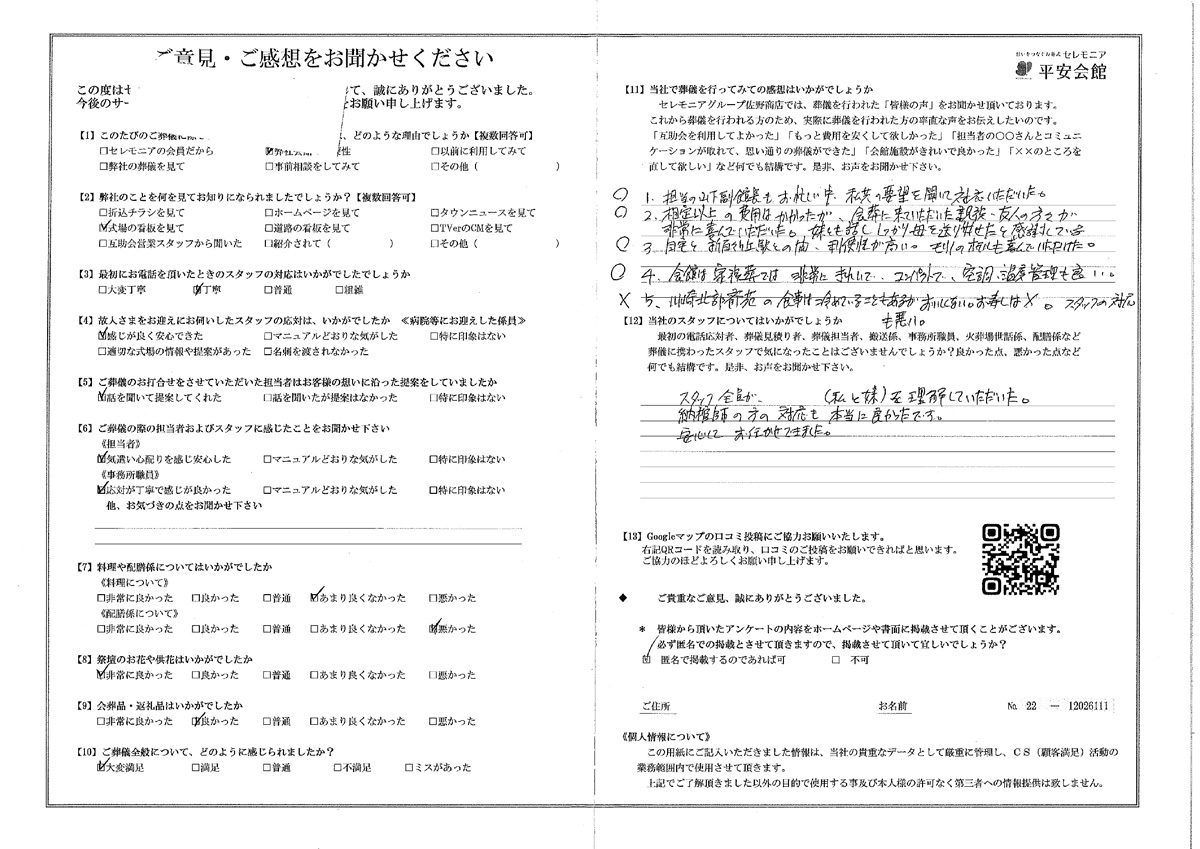 ご意見・ご感想をお聞かせください
この度は
て、誠にありがとうございました。
今後のサー
お願い申し上げます。
【1】このたびのご葬儀
、どのような理由でしょうか【複数回答可】
□セレモニアの会員だから ☑弊社 性 □以前に利用してみて
□弊社の葬儀を見て □事前相談をしてみて □その他（ ）
【2】弊社のことを何を見てお知りになられましたでしょうか？【複数回答可】
□折込チラシを見て □ホームページを見て □タウンニュースを見て
☑式場の看板を見て □道路の看板を見て □TVerのCMを見て
□互助会営業スタッフから聞いた □紹介されて（ ） □その他（ ）
【3】最初にお電話を頂いたときのスタッフの対応はいかがでしたでしょうか
□大変丁寧 ☑丁寧 □普通 □粗雑
【4】故人さまをお迎えにお伺いしたスタッフの応対は、いかがでしたか ≪病院等にお迎えした係員≫
☑感じが良く安心できた □マニュアルどおりな気がした □特に印象はない
□適切な式場の情報や提案があった □名刺を渡されなかった
【5】ご葬儀のお打合せをさせていただいた担当者はお客様の想いに沿った提案をしていましたか
☑話を聞いて提案してくれた □話を聞いたが提案はなかった □特に印象はない
【6】ご葬儀の際の担当者およびスタッフに感じたことをお聞かせ下さい
《担当者》
☑気遣い心配りを感じ安心した □マニュアルどおりな気がした □特に印象はない
《事務所職員》
☑応対が丁寧で感じが良かった □マニュアルどおりな気がした □特に印象はない
他、お気づきの点をお聞かせ下さい
【7】料理や配膳係についてはいかがでしたか
《料理について》
□非常に良かった □良かった □普通 ☑あまり良くなかった □悪かった
《配膳係について》
□非常に良かった □良かった □普通 □あまり良くなかった ☑悪かった
【8】祭壇のお花や供花はいかがでしたか
☑非常に良かった □良かった □普通 □あまり良くなかった □悪かった
【9】会葬品・返礼品はいかがでしたか
□非常に良かった ☑良かった □普通 □あまり良くなかった □悪かった
【10】ご葬儀全般について、どのように感じられましたか？
☑大変満足 □満足 □普通 □不満足 □ミスがあった
セレモニア
平安会館
【11】当社で葬儀を行ってみての感想はいかがでしょうか
セレモニアグループ佐野商店では、葬儀を行われた「皆様の声」をお聞かせ頂いております。
これから葬儀を行われる方のため、実際に葬儀を行われた方の率直な声をお伝えしたいのです。
「互助会を利用してよかった」「もっと費用を安くして欲しかった」「担当者の〇〇さんとコミュニ
ケーションが取れて、思い通りの葬儀ができた」「会館施設がきれいで良かった」「××のところを
直して欲しい」など何でも結構です。是非、お声をお聞かせ下さい。
○ 1. 担当の山下副館長もお忙しい中、私共の要望を聞いて対応いただいた。
○ 2. 想定以上の費用はかかったが、会葬に来ていただいた親族・友人の方々が
非常に喜んでいただいた。妹とも話し しっかり母を送り出せたと感謝している
○ 3. 自宅と新百合丘駅との間、利便性が高い。 も喜んでいただけた。
○ 4. 会館は家族葬では 非常にきれいで、コンパクトで、空調、温度管理も良い。
× 5. 川崎北部斎苑の食事は冷めていることもあるが おいしくない。お寿しは×。スタッフの対応
も悪い。
【12】当社のスタッフについてはいかがでしょうか
最初の電話応対者、葬儀見積り者、葬儀担当者、搬送係、事務所職員、火葬場世話係、配膳係など
葬儀に携わったスタッフで気になったことはございませんでしょうか？良かった点、悪かった点など
何でも結構です。是非、お声をお聞かせ下さい。
スタッフ全員が、 （私と妹）を理解していただいた。
納棺師の方の対応も本当に良かったです。
安心して お任せできました。
【13】Googleマップの口コミ投稿にご協力お願いいたします。
右記QRコードを読み取り、口コミのご投稿をお願いできればと思います。
ご協力のほどよろしくお願い申し上げます。
◆ ご貴重なご意見、誠にありがとうございました。
＊ 皆様から頂いたアンケートの内容をホームページや書面に掲載させて頂くことがございます。
必ず匿名での掲載とさせて頂きますので、掲載させて頂いて宜しいでしょうか？
☑ 匿名で掲載するのであれば可 □ 不可
ご住所 お名前 № 22 ― 12026111
《個人情報について》
この用紙にご記入いただきました情報は、当社の貴重なデータとして厳重に管理し、CS（顧客満足）活動の
業務範囲内で使用させて頂きます。
上記でご了解頂きました以外の目的で使用する事及び本人様の許可なく第三者への情報提供は致しません。